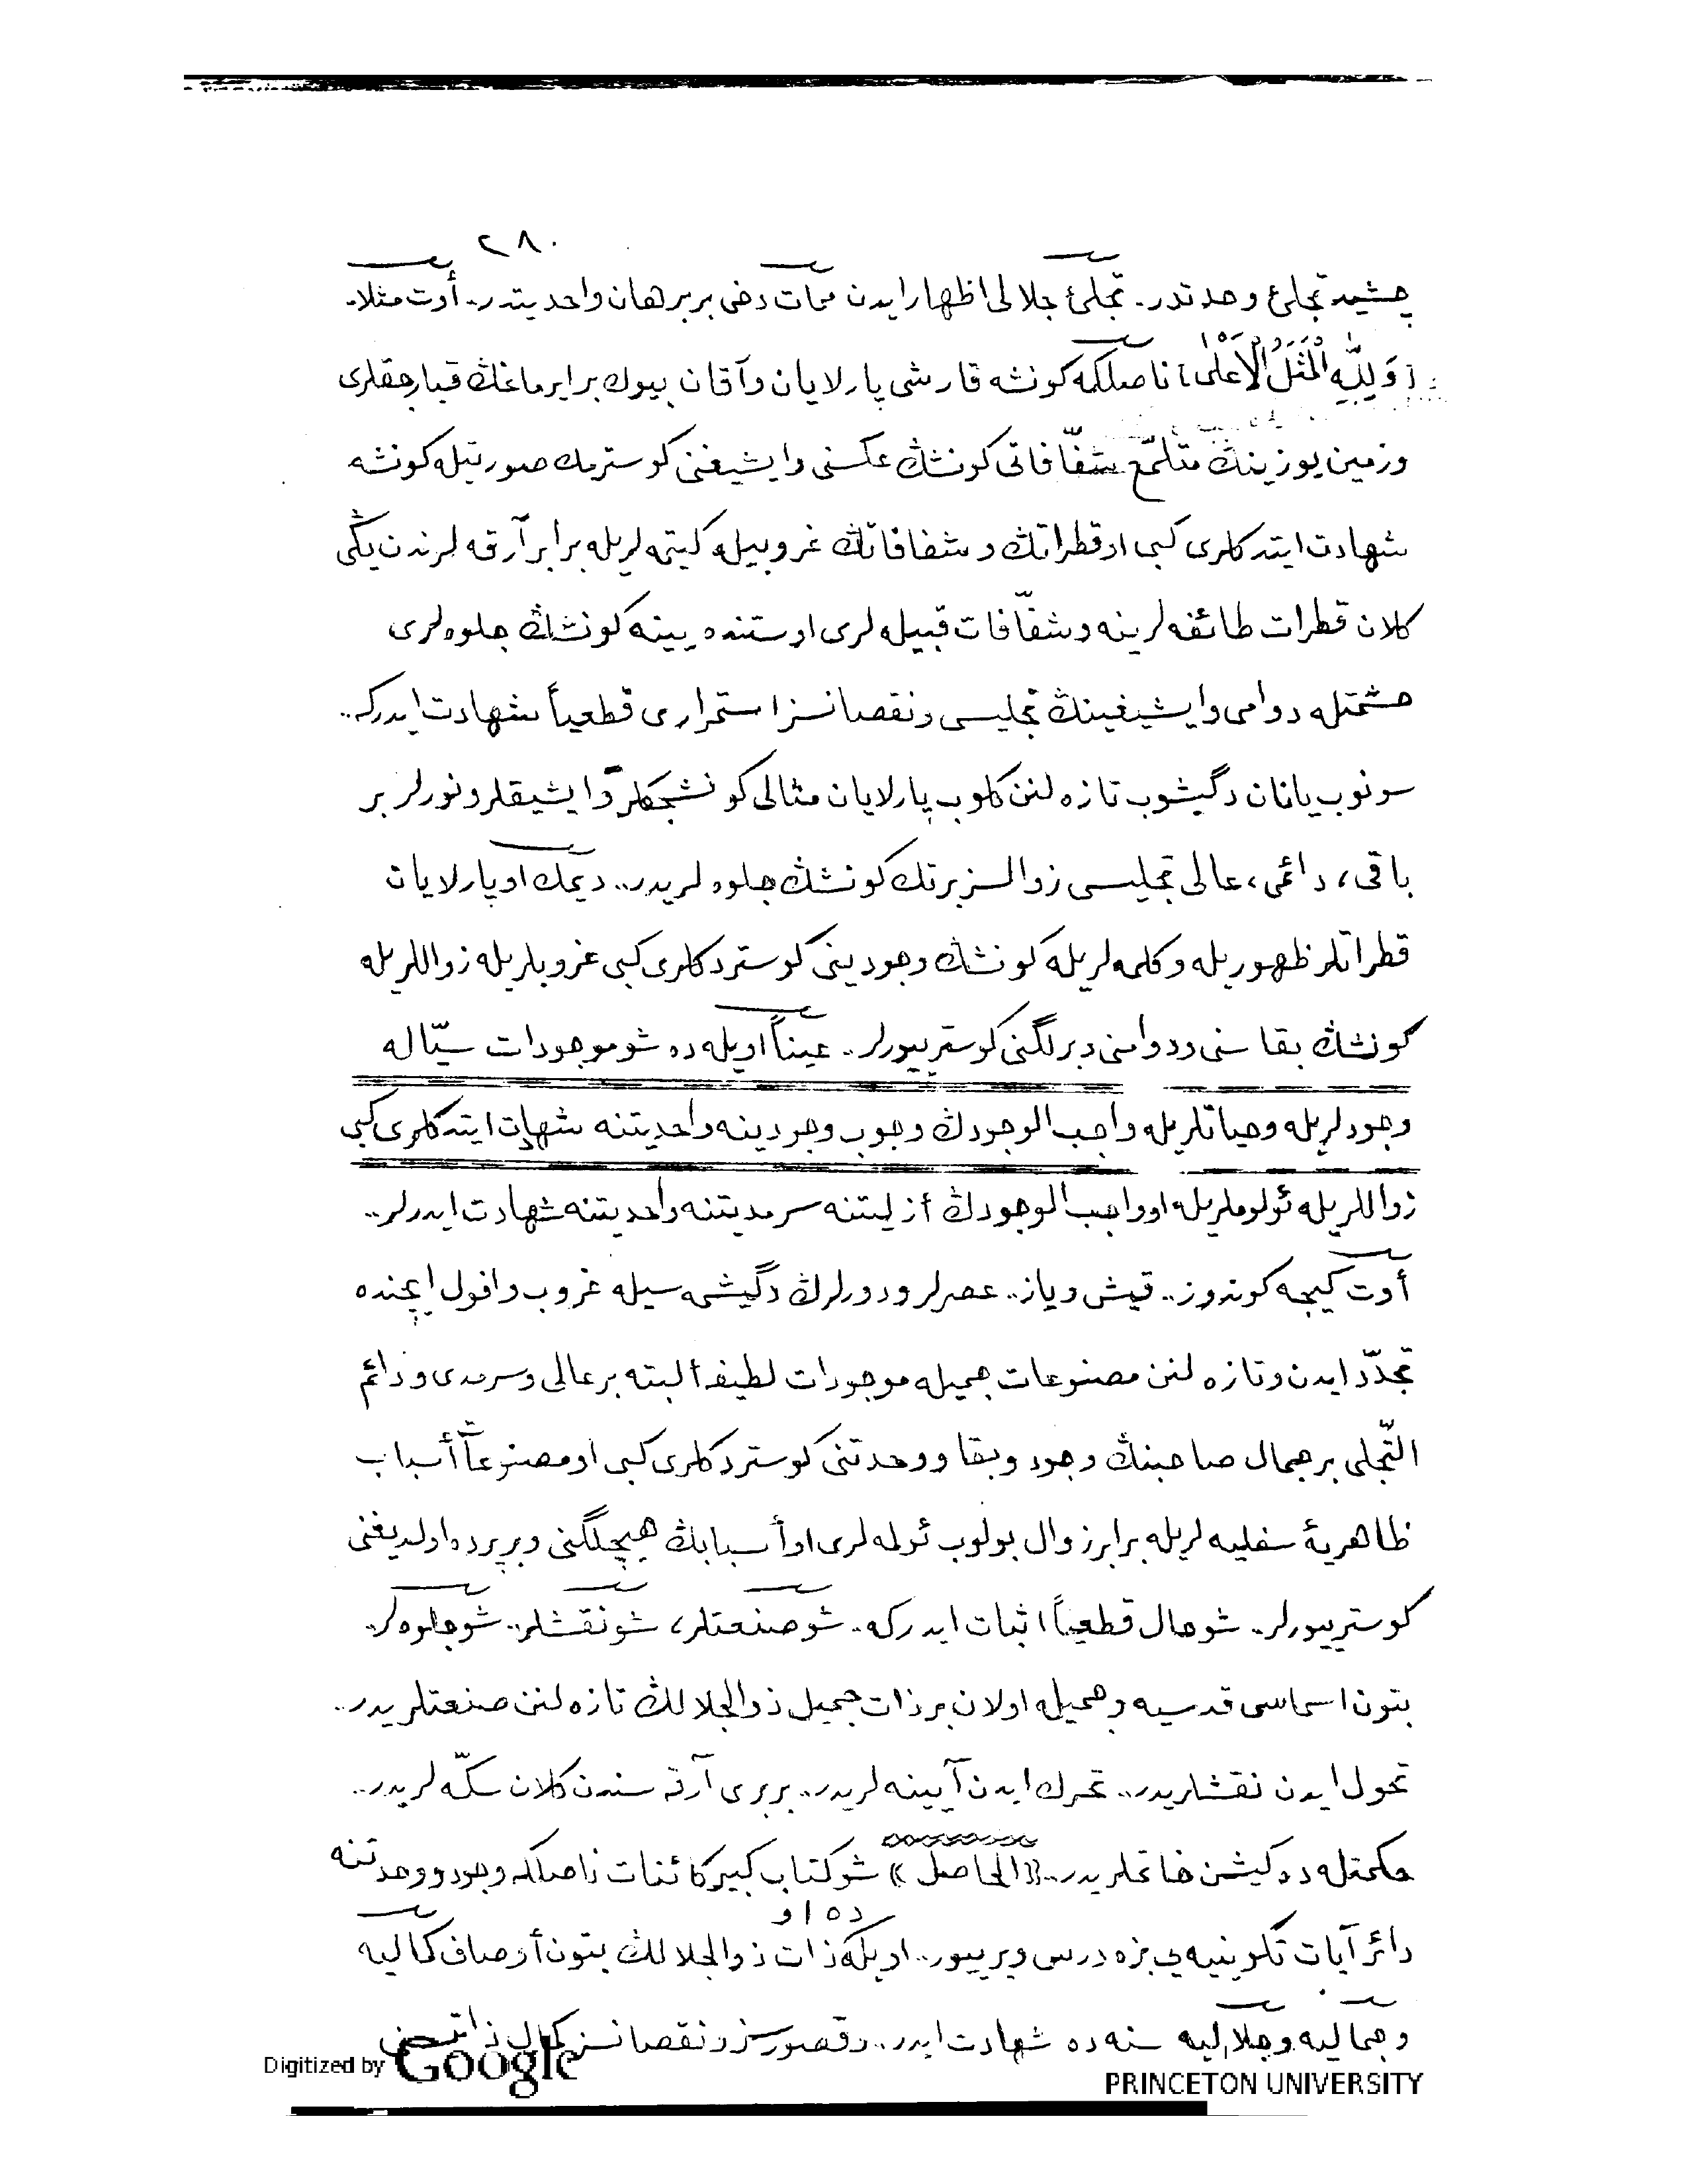 ٢٨٠
چشید تجلئ وحدتدر.. تجلئ جلالی اظهار ایدن ممات دخی بر برهان واحدیتدر.. أوت مثلا..
[وَلِلّٰهِ الْمَثَلُ الْاَعْلٰى] ناصلكه كونشه قارشی پارلایان وآقان بیوك بر ایرماغڭ قبارجقلری
وزمین یوزینڭ متلمّع شفّافاتی كونشڭ عكسنی وایشیغنی كوسترمك صورتیله كونشه
شهادت ایتدكلری كبی او قطراتڭ و شفافاتڭ غروبیله كیتمه لریله برابر آرقه لرندن یڭی
كلان قطرات طائفه لرینه و شفّافات قبیله لری اوستنده یینه كونشڭ جلوه لری
حشمتله دوامی وایشیغینڭ تجلیسی و نقصانسز استمراری قطعیاً شهادت ایدركه..
سونوب یانان دگیشوب تازه لنن كلوب پارلایان مثالی كونشجكلر وایشیقلر ونورلر بر
باقی، دائمی، عالی تجلیسی زوالسز برتك كونشڭ جلوه لریدر.. دیمك او پارلایان
قطراتلر ظهوریله و كلمه لریله كونشڭ وجودینی كوستردكلری كبی غروبلریله زواللریله
كونشڭ بقاسنی ودوامنی وبرلگنی كوستریيورلر.. عیناً اویله ده شو موجودات سیّاله
وجودلریله وحیاتلریله واجب الوجودڭ وجوب وجودینه واحدیتنه شهادت ایتدكلری كبی
زواللریله ئولوملریله او واجب الوجودڭ أزلیتنه سرمدیتنه واحدیتنه شهادت ایدرلر..
أوت كیجه كوندوز.. قیش ویاز.. عصرلر ودورلرڭ دگیشمه سیله غروب وافول ایچنده
تجدّد ایدن وتازه لنن مصنوعات جمیله موجودات لطیفه ألبته بر عالی وسرمدی و دائم
التّجلی بر جمال صاحبنڭ وجود وبقا ووحدتنی كوستردكلری كبی او مصنوعات أسباب
ظاهریۀ سفلیه لریله برابر زوال بولوب ئولمه لری او أسبابڭ هیچلگنی و بر پرده اولدیغنی
كوستریيورلر.. شو حال قطعیاً اثبات ایدركه.. شو صنعتلر، شو نقشلر.. شو جلوه لر..
بتون اسماسی قدسیه وجمیله اولان بر ذات جمیل ذوالجلالڭ تازه لنن صنعتلریدر..
تحول ایدن نقشلریدر.. تحرك ایدن آیینه لریدر.. بربری آرقه سندن كلان سكّه لریدر..
حكمتله ده گیشن خاتملریدر.. «الحاصل» شو كتاب كبیر كائنات ناصلكه وجود ووحدتنه
دائر آیات تكوینیه یی بزه درس ویریيور.. اویلكه ذات ذوالجلالڭ بتون أوصاف كمالیه
ده او
وجمالیه وجلالیه سنه ده شهادت ایدر.. وقصورسز و نقصانسز كمال ذاتیسنی
Digitized by Google
PRINCETON UNIVERSITY